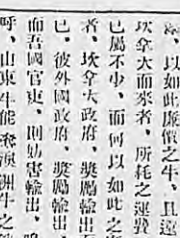 以如此廉價之牛、且遠
坎拿大而來者、所耗之運費
已屬不少、而何以如此之
者、坎拿大政府、獎勵輸出
已、彼外國政府、獎勵輸出、
而吾國官吏、則妨害輸出、
呼、山東牛能奪澳洲牛之